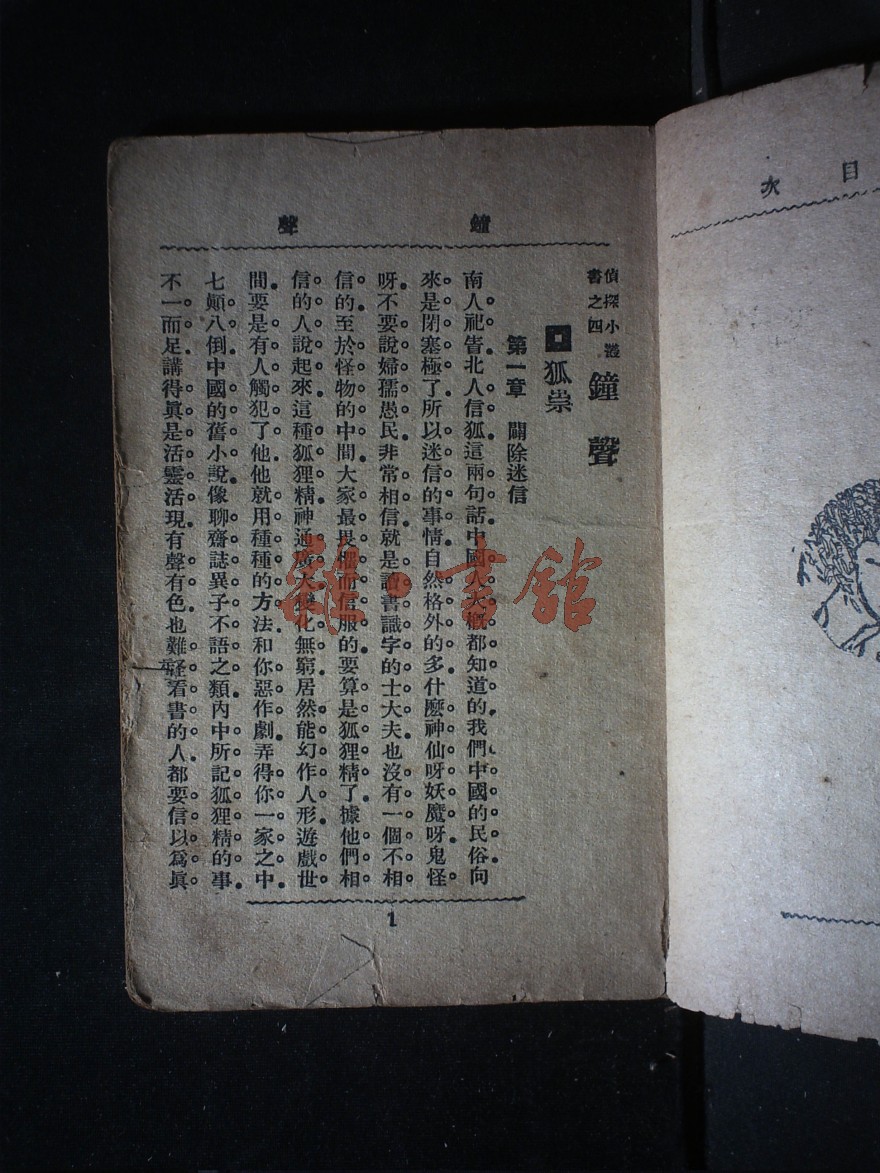 次 目
鐘 聲
偵探小叢
書之四
鐘聲
狐祟
第一章 闢除迷信
南人祀眚北人信狐這兩句話中國人大概都知道的我們中國的民俗向
來是閉塞極了所以迷信的事情自然格外的多什麼神仙呀妖魔呀鬼怪
呀不要說婦孺愚民非常相信就是讀書識字的士大夫也沒有一個不相
信的至於怪物的中間大家最畏懼而信服的要算是狐狸精了據他們相
信的人說起來這種狐狸精神通廣大變化無窮居然能幻作人形遊戲世
間要是有人觸犯了他他就用種種的方法和你惡作劇弄得你一家之中
七顛八倒中國的舊小說像聊齋誌異子不語之類內中所記狐狸精的事
不一而足講得眞是活靈活現有聲有色也難怪看書的人都要信以爲眞
1
雜·書館